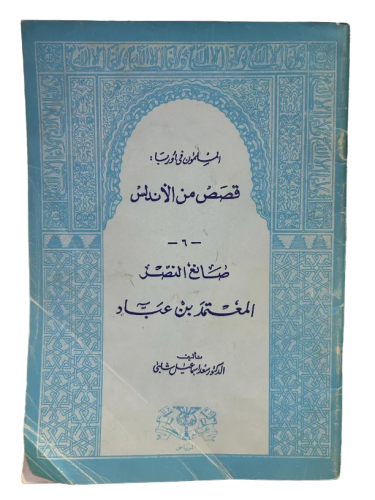 المسلمون في أوربا:
قصص من الأندلس
- ٦ -
صانع النصر
المعتمد بن عباد
تأليف
الدكتور سعد إسماعيل شلبي